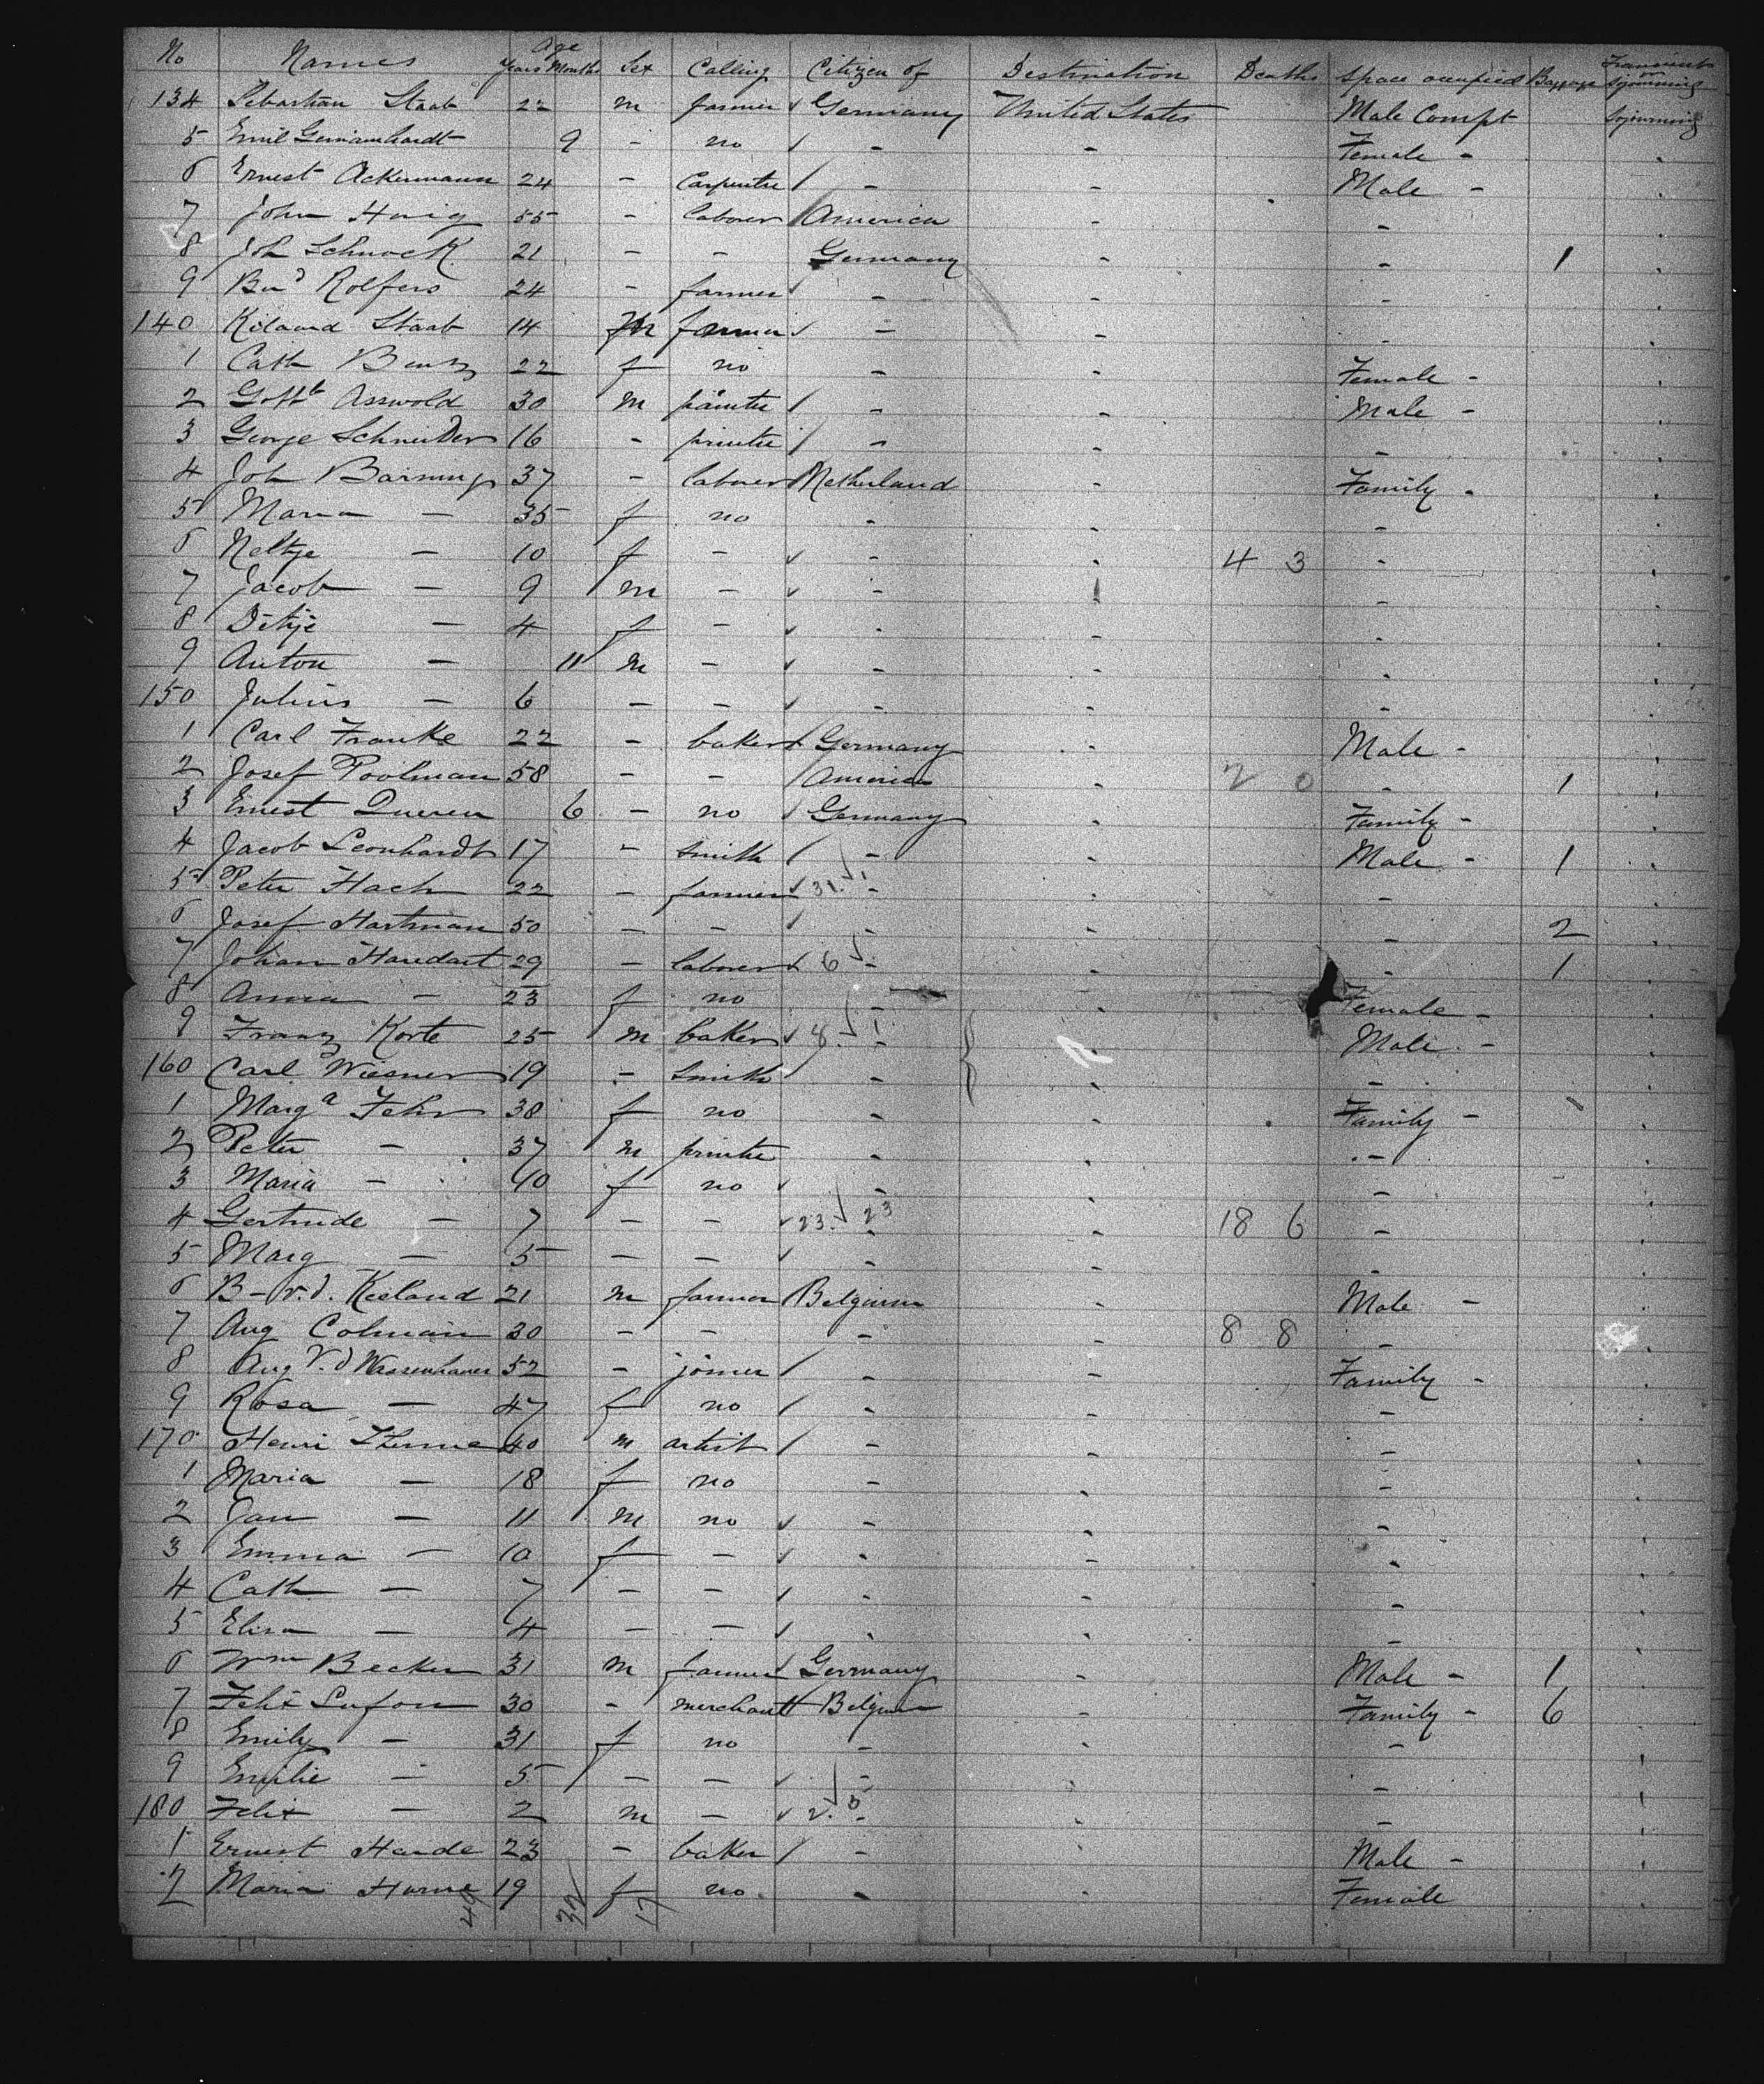 No Names Age Years Months Sex Calling Citizen of Destination Deaths Space occupied Baggage Transient or Sojourning
134 Sebastian Staab 22 m farmer Germany United States Male Compt Sojourning
5 Emil 9 - no - - Female -
6 Ernest Ackermann 24 - Carpenter - - Male -
7 John Hanig 55 - laborer America - -
8 Joh Schnock 21 - - Germany - - 1
9 Bnd Rolfers 24 - farmer - - -
140 Staab 14 m farmer - - -
1 Cath 22 f no - - Female -
2 Gottb Asswold 30 m painter - - Male -
3 George Schneider 16 - printer - - -
4 Joh 37 - laborer Netherland - Family -
5 Maria - 35 f no - - -
6 Neltje - 10 f - - - 4 3 -
7 Jacob - 9 m - - -
8 Ditje - 4 f - - - -
9 Anton - 11 m - - - -
150 Julius - 6 - - - - -
1 Carl Franke 22 - baker Germany - Male -
2 Josef Poolman 58 - - America - 2 0 - 1
3 Ernest Queren 6 - no Germany - Family -
4 Jacob Leonhardt 17 - Smith - - Male - 1
5 Peter Hach 22 - farmer 31. 1 - - -
6 Josef Hartman 50 - - - - - 2
7 Johan Haredart 29 - laborer 6 - - - 1
8 Anna - 23 f no - - Female -
9 Franz Korte 25 m baker 8. 1 - - Male -
160 Carl Wiesner 19 - Smith - - -
1 Marga Fehr 38 f no - - Family -
2 Peter - 37 m printer - - -
3 Maria - 10 f no - - -
4 Gertrude - 7 - - 23. 23 - - 18 6 -
5 Marg - 5 - - - - -
6 B- v.d. Keeland 21 m farmer Belgium - Male -
7 Aug Colman 30 - - - - 8 8 -
8 Aug V.d 52 - joiner - - Family -
9 Rosa - 47 f no - - -
170 Henri 40 m artist - - -
1 Maria - 18 f no - - -
2 Jan - 11 m no - - -
3 Emma - 10 f - - - -
4 Cath - 7 - - - - -
5 Elisa - 4 - - - - -
6 Wm Becker 31 m farmer Germany - Male - 1
7 Felix Lufon 30 - merchant Belgium - Family - 6
8 Emily - 31 f no - - -
9 Emilie - 5 - - - - -
180 Felix - 2 m - 2. 0 - - -
1 Ernest Hande 23 - baker - - Male -
2 Maria 19 f no - - Female
49 32 17